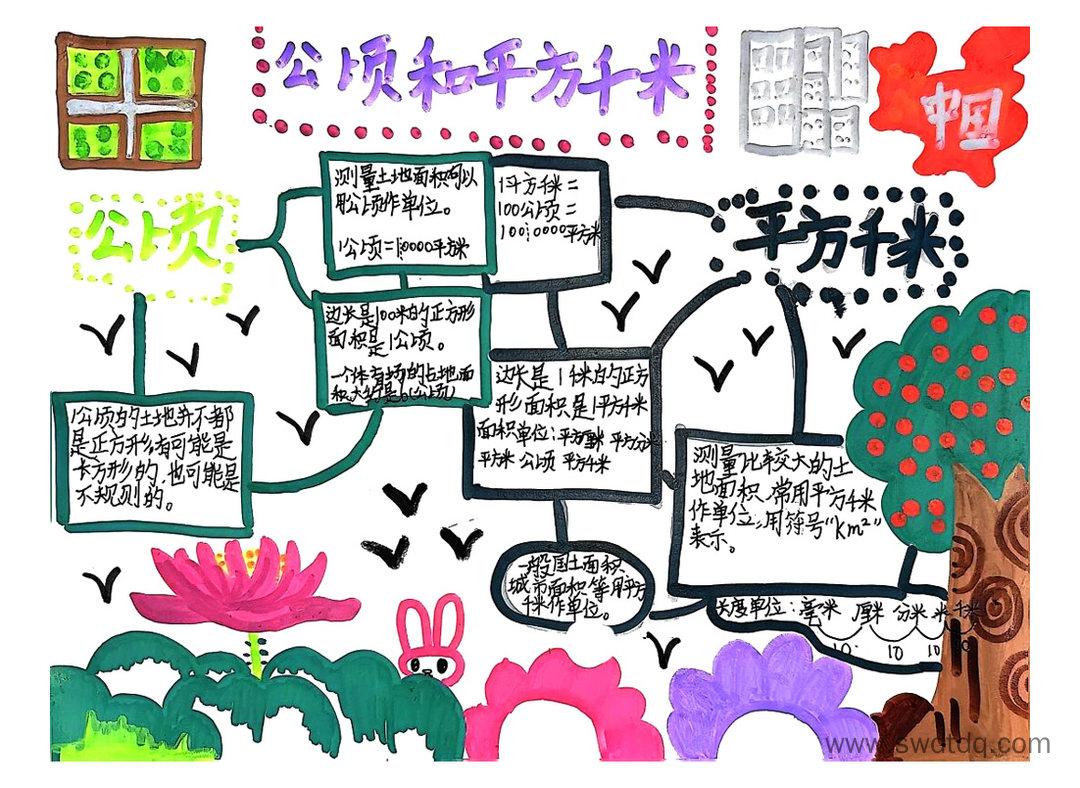 公顷和平方千米
中国
公顷
测量土地面积可以
用公顷作单位。
1公顷=10000平方米
1平方千米=
100公顷=
1000000平方米
平方千米
边长是100米的正方形
面积是1公顷。
一个体育场的占地面
积大约是。(公顷)
1公顷的土地并不都
是正方形,有可能是
长方形的,也可能是
不规则的。
边长是1千米的正方
形面积是1平方千米
面积单位:平方厘米 平方分米
平方米 公顷 平方千米
测量比较大的土
地面积,常用平方千米
作单位,用符号“km²”
表示。
一般国土面积,
城市面积等用平方
千米作单位。
长度单位:毫米 厘米 分米 米 千米
10 10 10
www.swdtdq.com